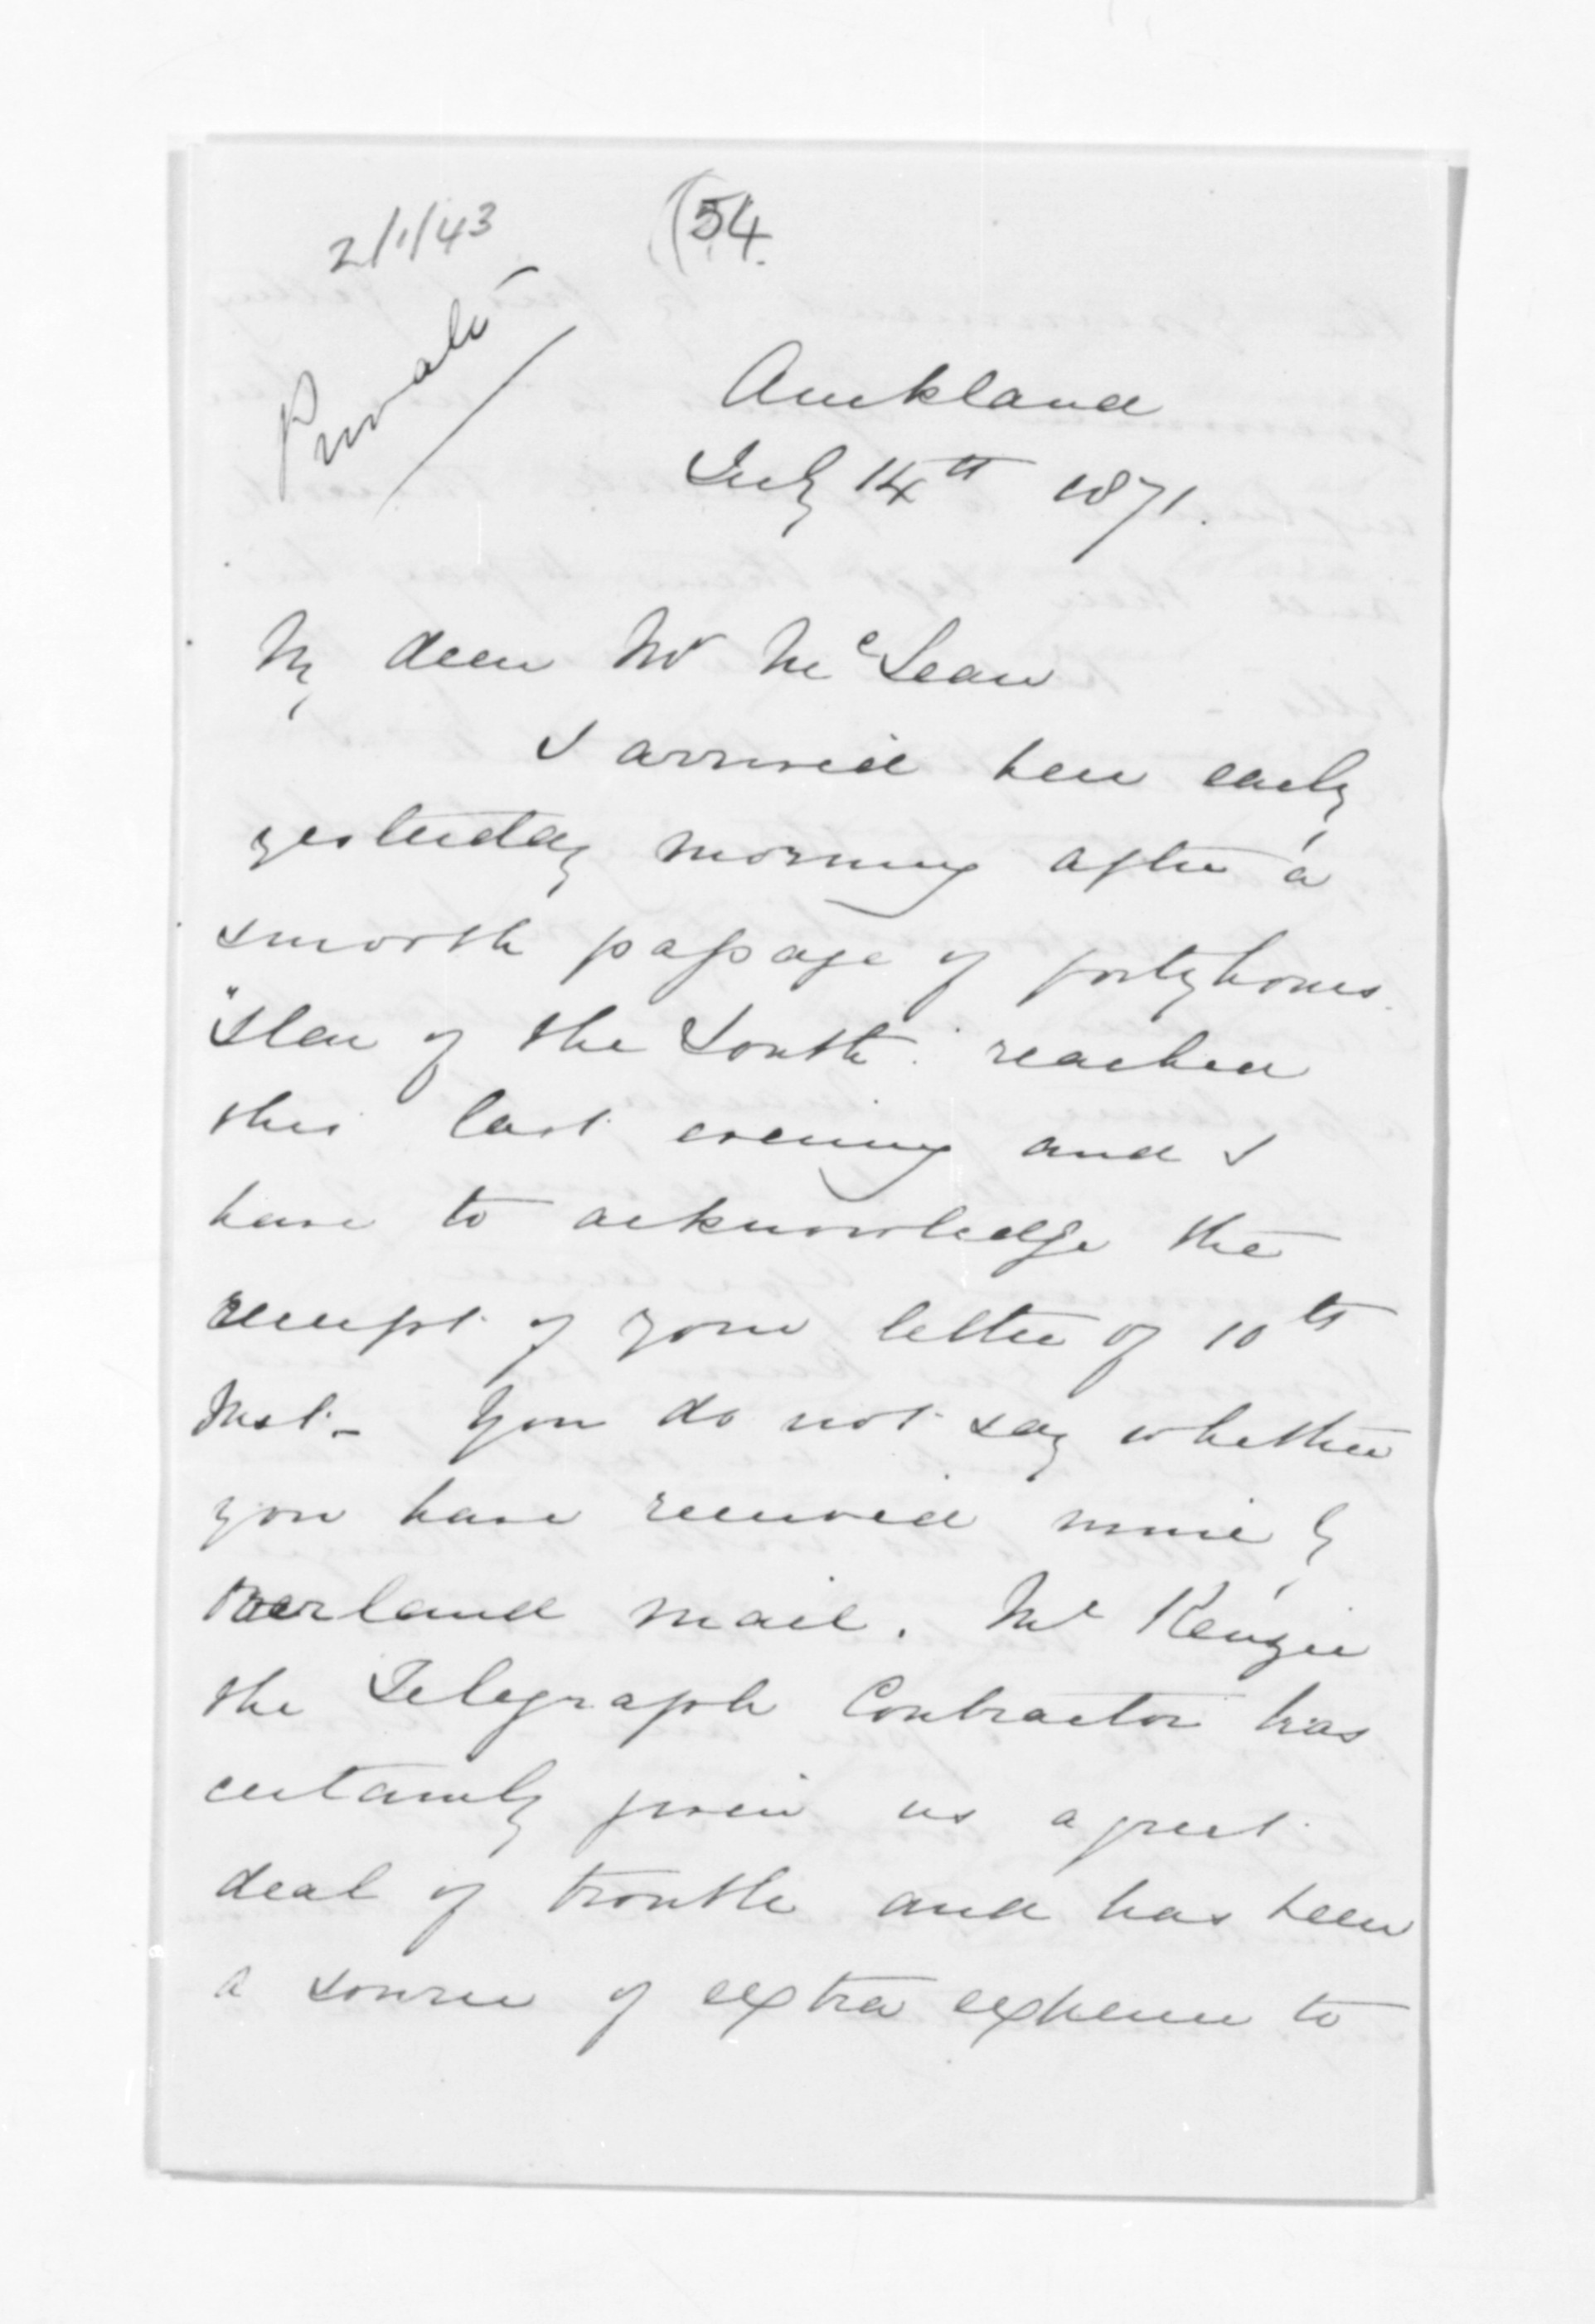 2/1/43
(54.
Private
Auckland
July 14th 1871.
My dear Mr McLean
I arrived here early
yesterday morning after a
smooth passage of forty hours.
"Star of the South" reached
this last evening and I
have to acknowledge the
receipt of your letter of 10th
Inst. - You do not say whether
you have received mine by
overland mail. McKenzie
the Telegraph Contractor has
certainly given us a great
deal of trouble and has been
a source of extra expense to